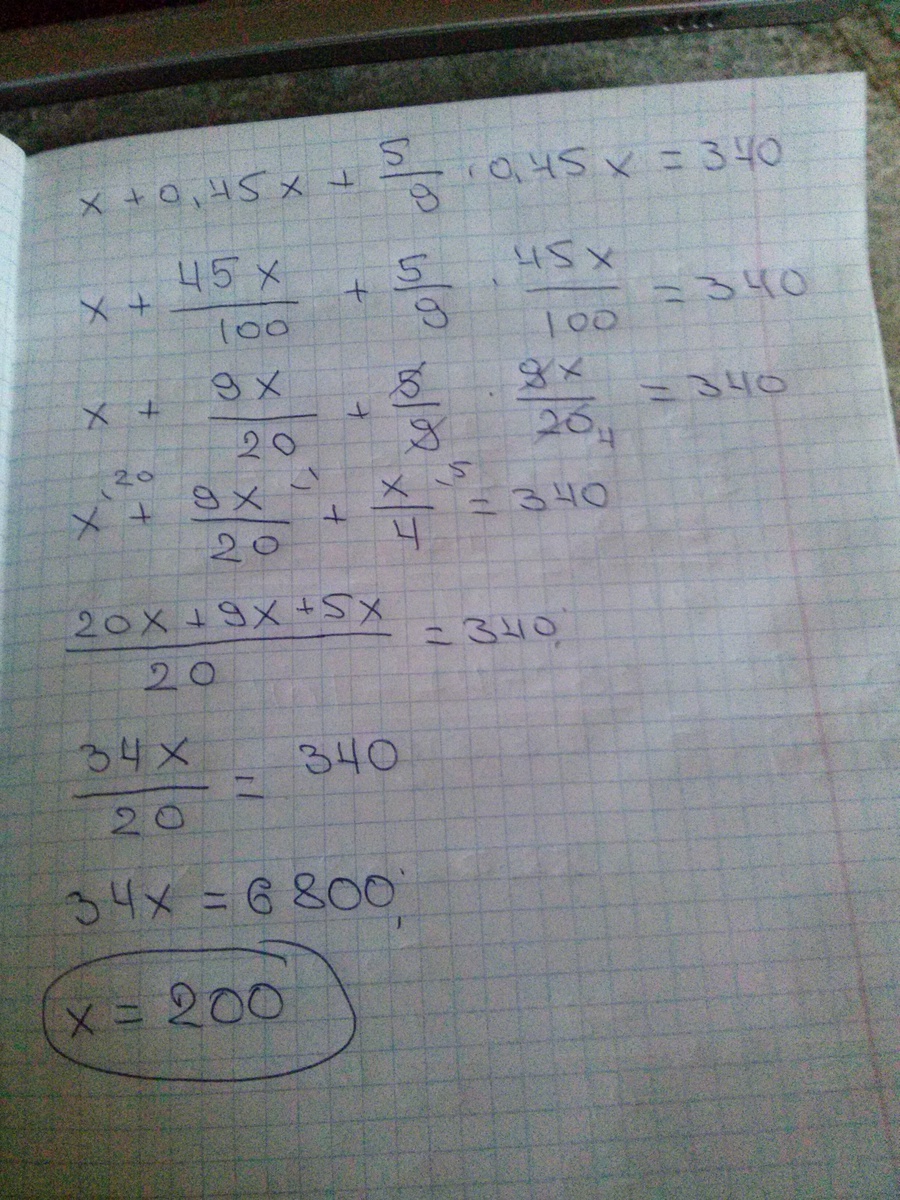 x + 0,45x + 5/9 · 0,45x = 340
x + 45x/100 + 5/9 · 45x/100 = 340
x + 9x/20 + 5/9 · 9x/20 4 = 340
x ,20 + 9x/20 ,1 + x/4 ,5 = 340
20x + 9x + 5x/20 = 340;
34x/20 = 340
34x = 6800;
x = 200